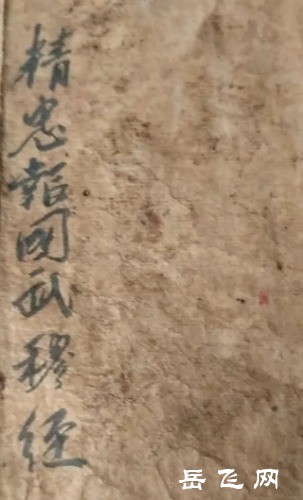 精忠報國武穆經
岳飞网